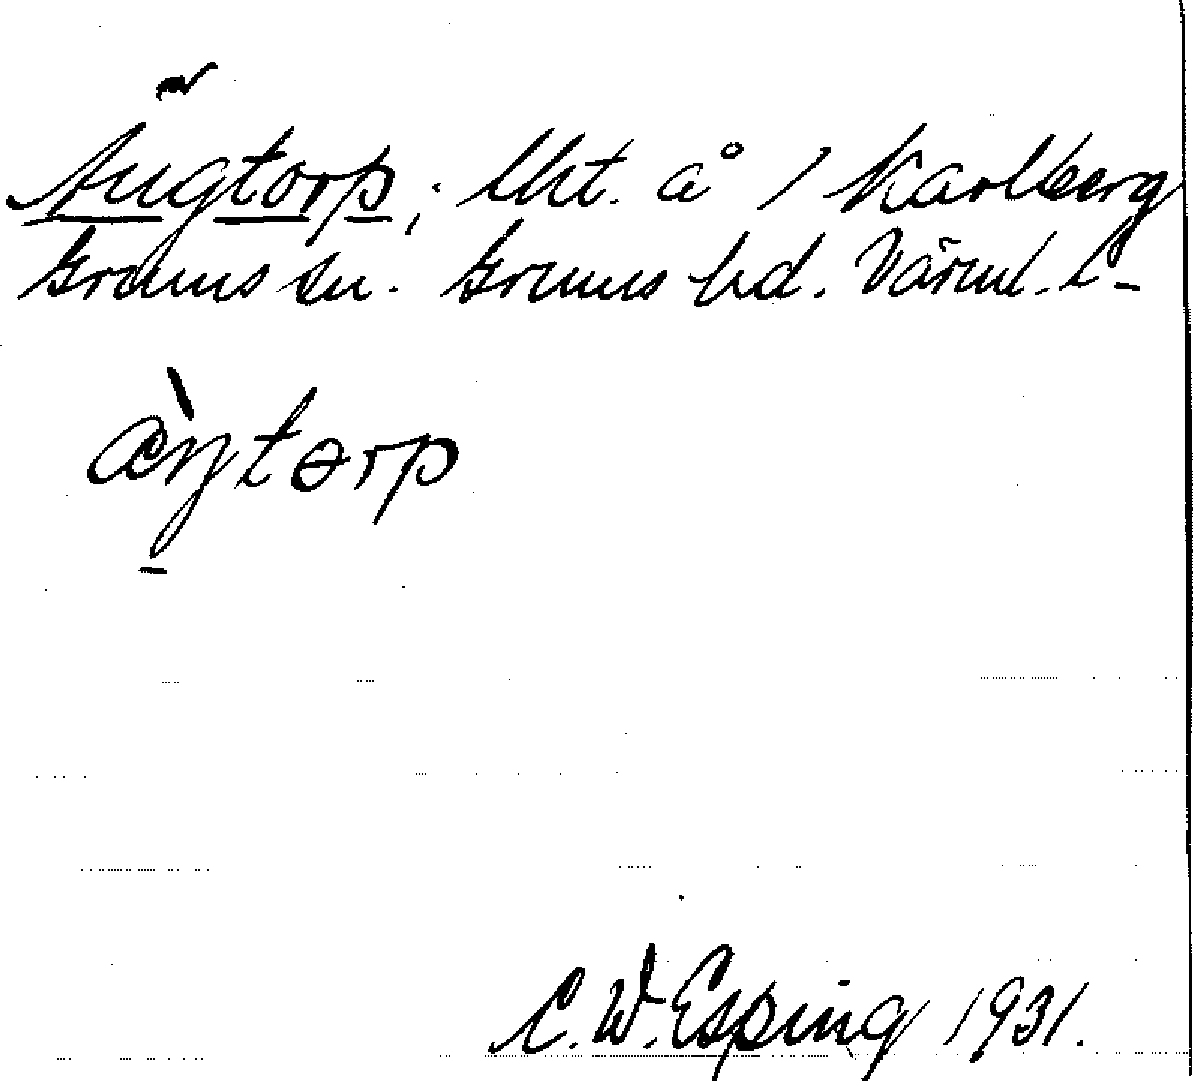 Ängtorp; lht. å / Karlberg
Grums sn. Grums hd. Värml. l-
æ̀ŋtorp
C. W. Esping 1931.